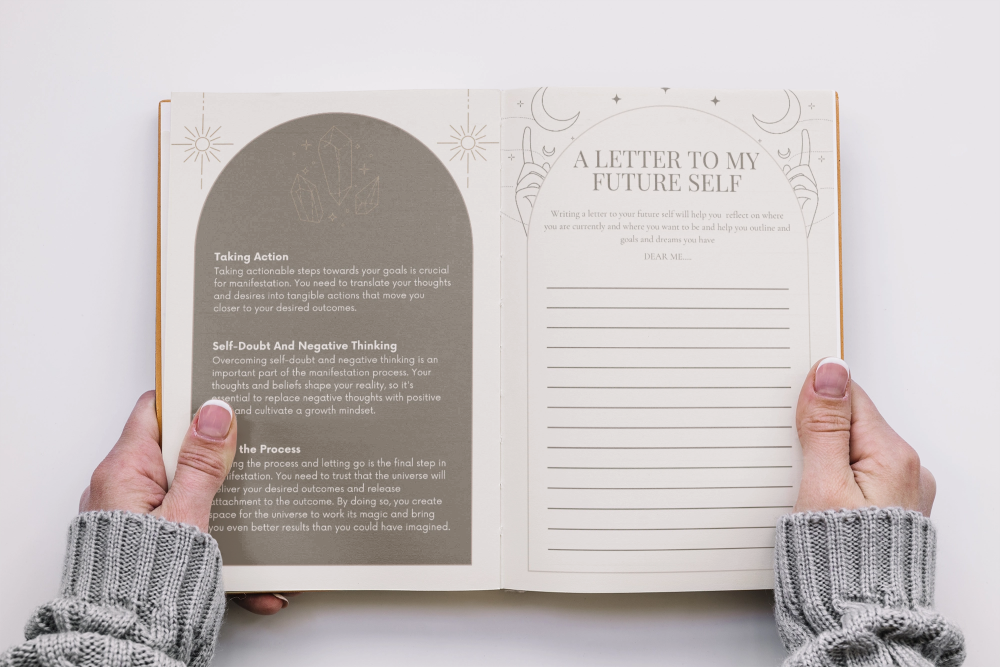 Taking Action
Taking actionable steps towards your goals is crucial
for manifestation. You need to translate your thoughts
and desires into tangible actions that move you
closer to your desired outcomes.
Self-Doubt And Negative Thinking
Overcoming self-doubt and negative thinking is an
important part of the manifestation process. Your
thoughts and beliefs shape your reality, so it's
essential to replace negative thoughts with positive
and cultivate a growth mindset.
the Process
the process and letting go is the final step in
You need to trust that the universe will
your desired outcomes and release
attachment to the outcome. By doing so, you create
space for the universe to work its magic and bring
you even better results than you could have imagined.
A LETTER TO MY
FUTURE SELF
Writing a letter to your future self will help you reflect on where
you are currently and where you want to be and help you outline and
goals and dreams you have
DEAR ME....